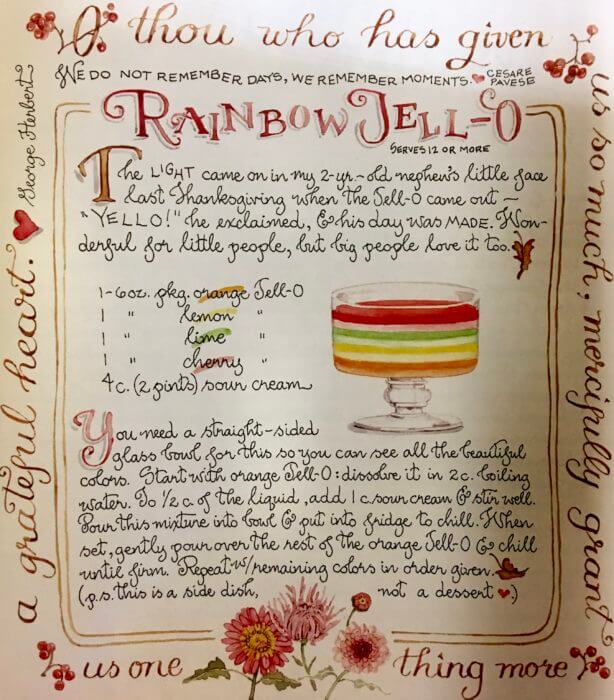 O thou who has given
us so much, mercifully grant
us one thing more
a grateful heart. ♥ George Herbert
WE DO NOT REMEMBER DAYS, WE REMEMBER MOMENTS. ♥ CESARE
PAVESE
RAINBOW JELL-O
SERVES 12 OR MORE
The LIGHT came on in my 2-yr.-old nephew's little face
last Thanksgiving when the Jell-O came out ~
"YELLO!" he exclaimed, & his day was MADE. Won-
derful for little people, but big people love it too.
1-6oz. pkg. orange Jell-O
1 " lemon "
1 " lime "
1 " cherry "
4 c. (2 pints) sour cream
You need a straight-sided
glass bowl for this so you can see all the beautiful
colors. Start with orange Jell-O: dissolve it in 2 c. boiling
water. To 1/2 c. of the liquid, add 1 c. sour cream & stir well.
Pour this mixture into bowl & put into fridge to chill. When
set, gently pour over the rest of the orange Jell-O & chill
until firm. Repeat w/remaining colors in order given.
(p.s. this is a side dish, not a dessert ♥.)